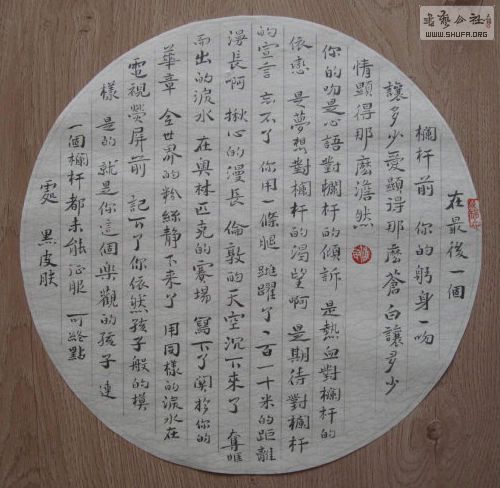 在最後一個
欄杆前 你的躬身一吻
讓多少愛顯得那麼蒼白讓多少
情顯得那麼澹然
你的吻是心語對欄杆的傾訴 是熱血對欄杆的
依戀 是夢想對欄杆的渴望啊 是期待對欄杆
的宣言 忘不了 你用一條腿 跳躍了一百一十米的距離
漫長啊 揪心的漫長 倫敦的天空沉下來了 奪眶
而出的淚水 在奧林匹克的賽場 寫下了關於你的
華章 全世界的粉絲静下來了 用同樣的淚水在
電視熒屏前 記下了你依然孩子般的模
樣 是的 就是你這個樂觀的孩子 連
一個欄杆都未能征服 可終點
處 黑皮肤
書藝公社
WWW.SHUFA.ORG